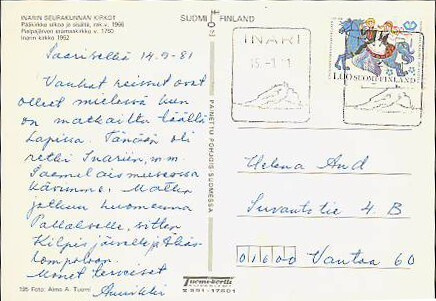 INARIN SEURAKUNNAN KIRKOT
Pääkirkko ulkoa ja sisältä, rak v. 1966
Pielpajärven erämaakirkko v. 1760
Inarin kirkko 1952
SUOMI FINLAND
Saariselkä 14.9-81
Vanhat reissut ovat
olleet mielessä kun
on matkailtu täällä
Lapissa. Tänään oli
retki Inariin, m.m.
Saamelaismuseossa
kävimme. Matka
jatkuu huomenna
Pallakselle, sitten
Kilpisjärvelle ja Äkäs-
lompoloon.
Monet terveiset
Annikki
195 Foto: Aimo A. Tuomi
PAINETTU POHJOIS-SUOMESSA
INARI
LUO SUOMI FINLAND
Helena And
Suvantotie 4 B
01600 Vantaa 60